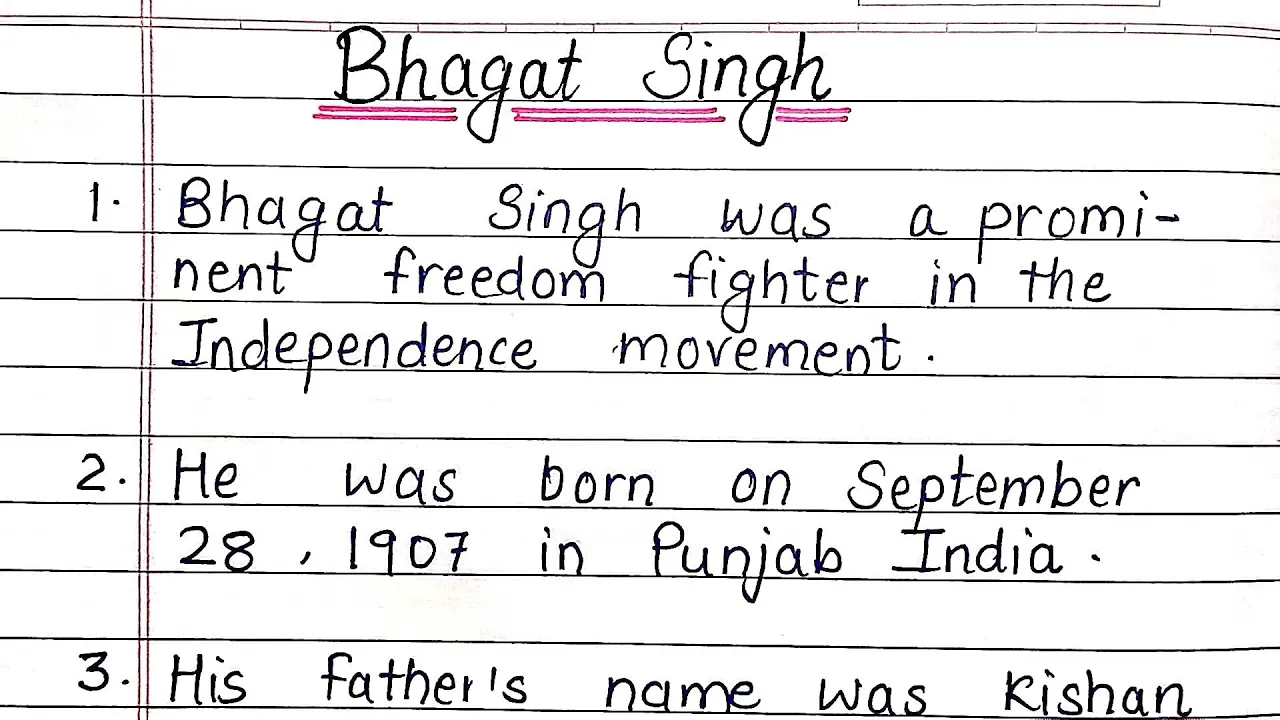 Bhagat Singh
1. Bhagat Singh was a promi-
nent freedom fighter in the
Independence movement.
2. He was born on September
28, 1907 in Punjab India.
3. His father's name was Kishan